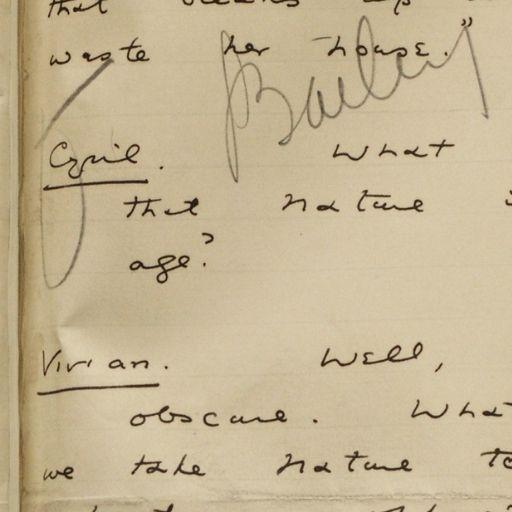 that breaks up
waste her house."
Bailey
Cyril. What
that Nature
age?
Vivian. Well,
obscure. What
we take Nature to